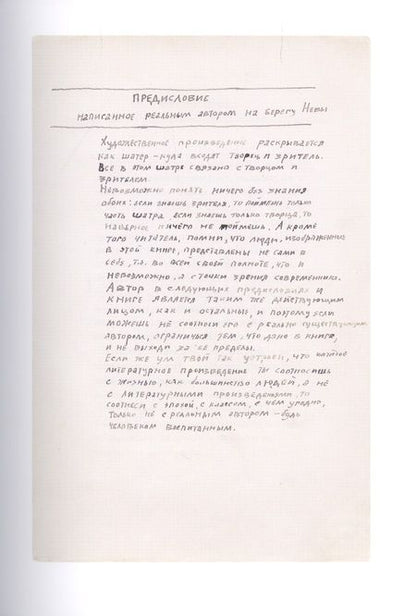 ПРЕДИСЛОВИЕ
написанное реальным автором на берегу Невы
Художественное произведение раскрывается
как шатер – куда входят творец и зритель.
Все в этом шатре связано с творцом и
зрителем.
Невозможно понять ничего без знания
обоих: если знаешь зрителя, то поймешь только
часть шатра, если знаешь только творца, то
наверное ничего не поймешь. А кроме
того читатель, помни, что люди, изображенные
в этой книге, представлены не сами по
себе, т.е. во всей своей полноте, что и
невозможно, а с точки зрения современника.
Автор в следующих предисловиях и
книге является таким же действующим
лицом, как и остальные, и поэтому если
можешь не соотноси его с реально существующим
автором, ограничься тем, что дано в книге,
и не выходи за ее пределы.
Если же ум твой так устроен, что каждое
литературное произведение ты соотносишь
с жизнью, как большинство людей, а не
с литературными произведениями, то
соотнеси с эпохой, с классом, с чем угодно,
только не с реальным автором – будь
человеком воспитанным.